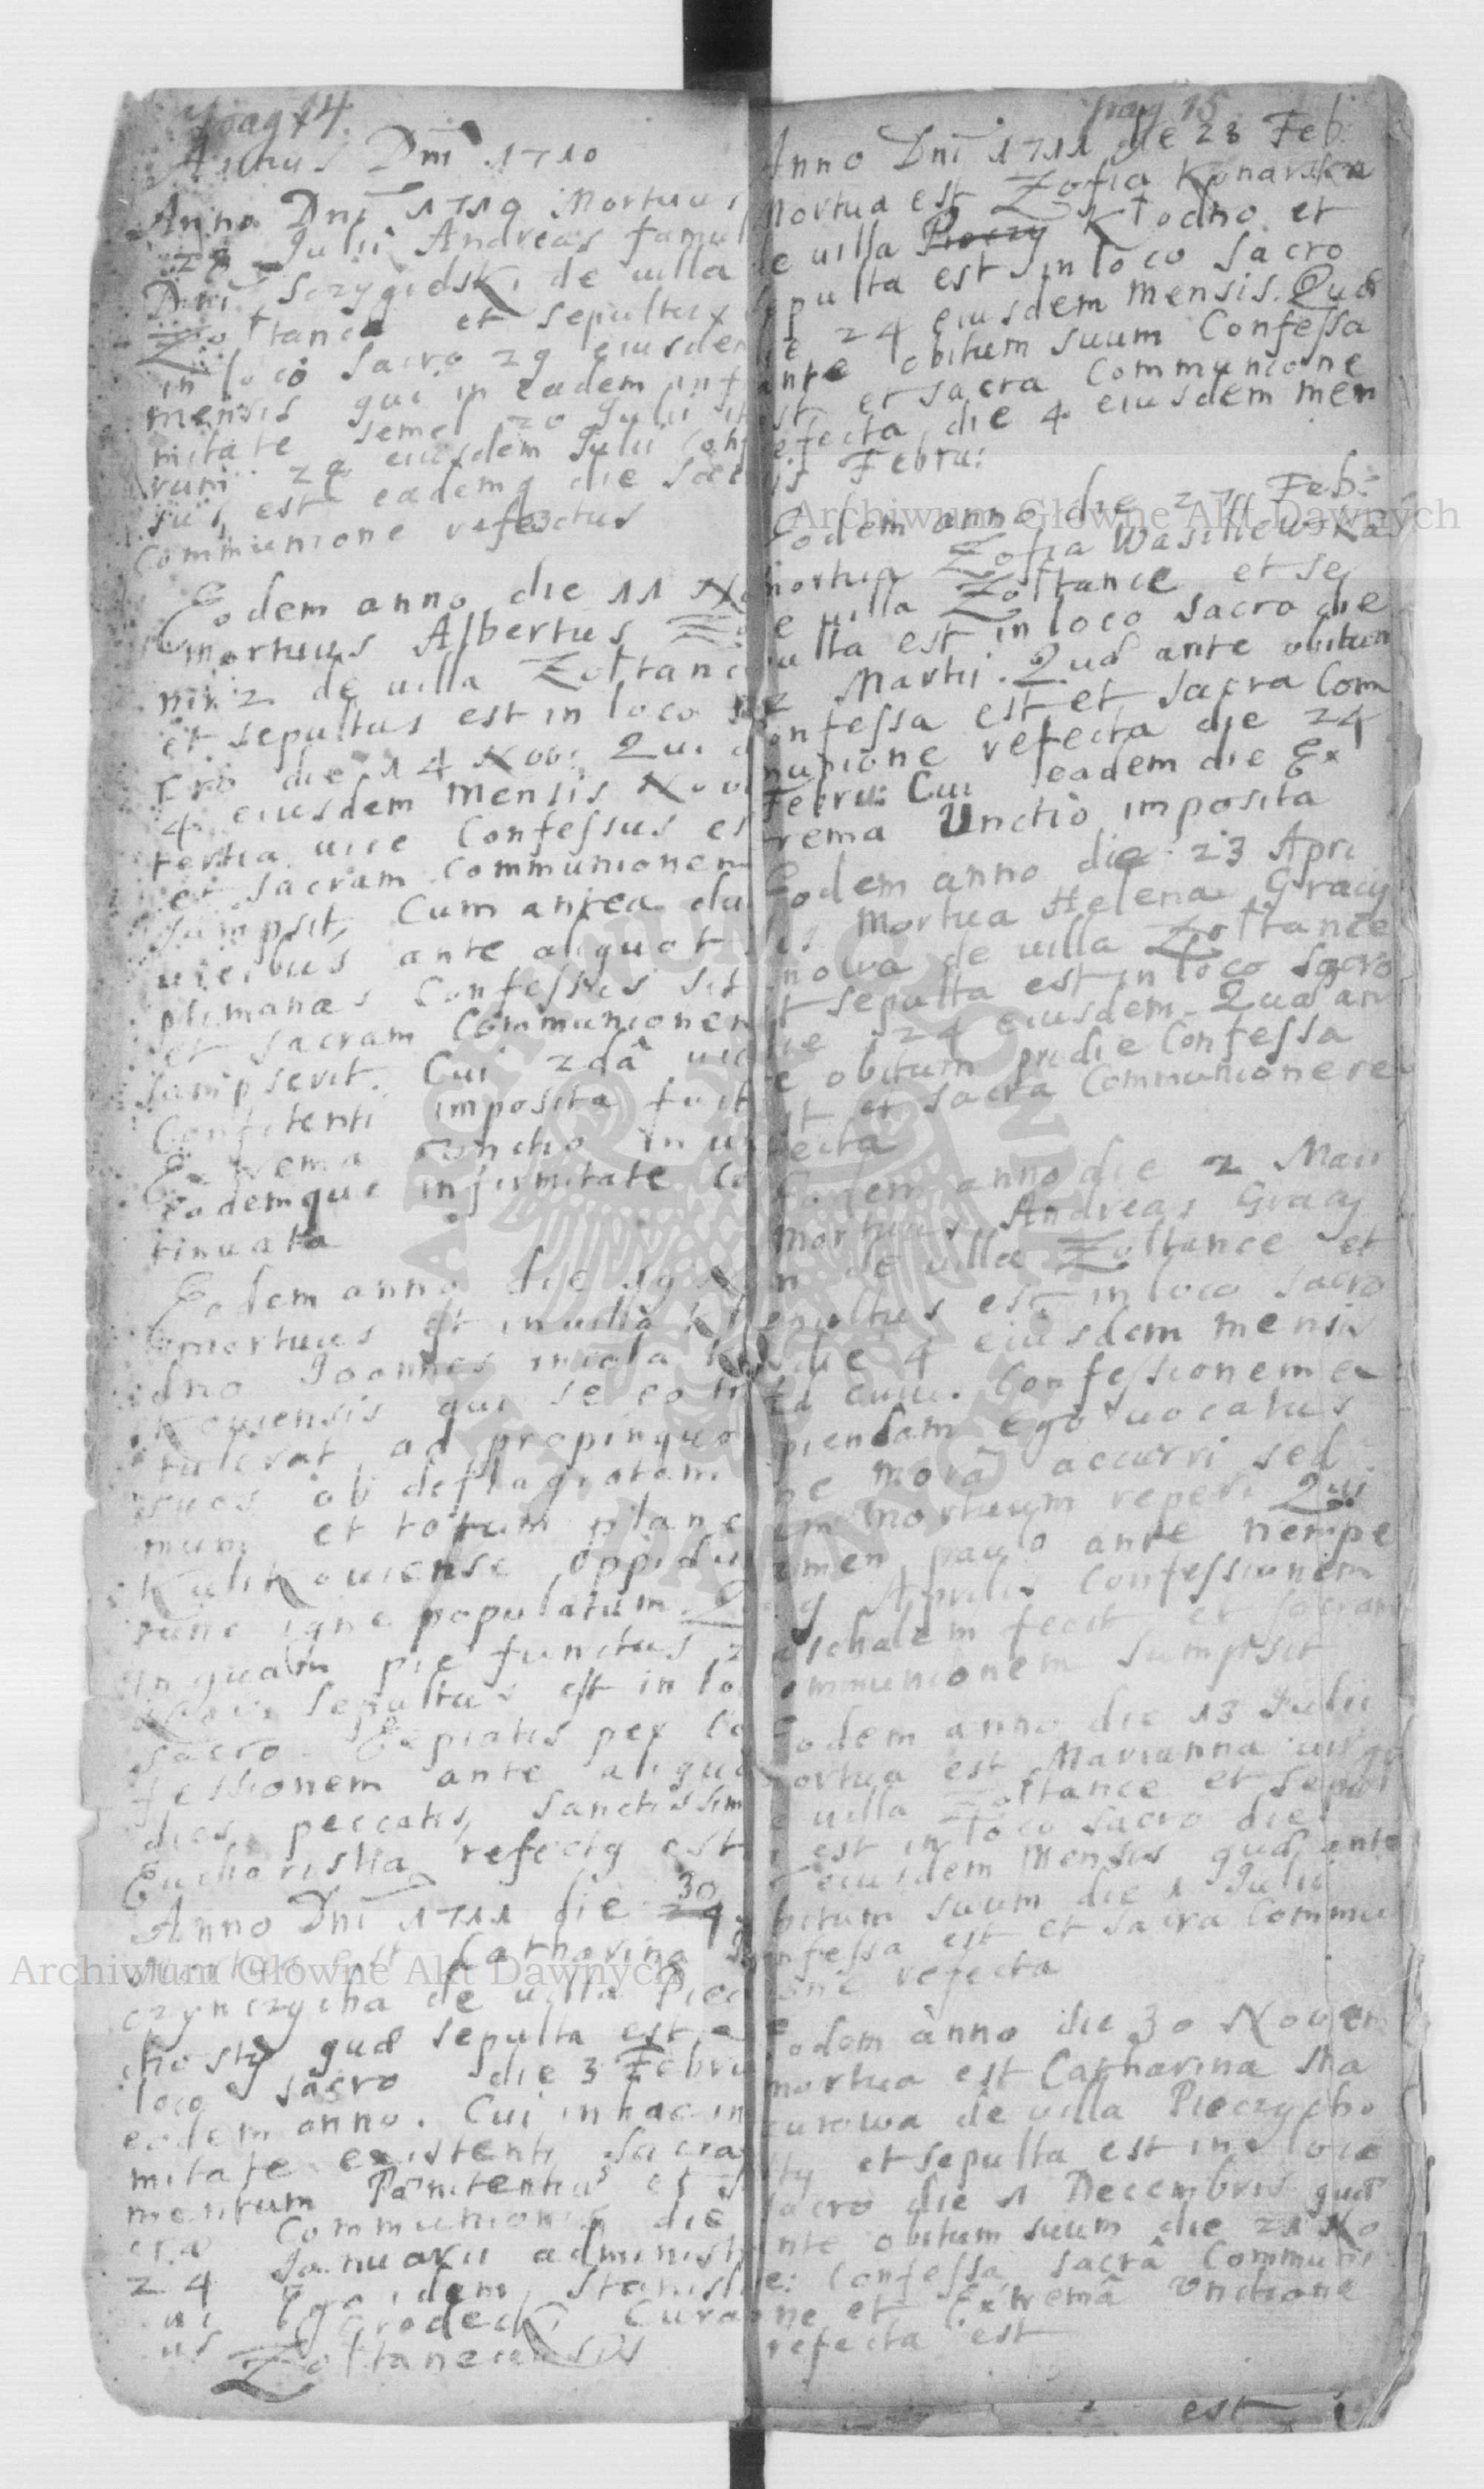 pag 14.
Annus Dni 1710
Anno Dni 1710 Mortuus
28 Julii Andreas famul
Dni Strzygidski de uilla
Zołtance et sepultus
in loco sacro 29 eiusdem
mensis qui in eadem infir
mitate semel 20 Julii ite
rum 28 eiusdem Julii Confes
sus est eademq die sacra
Communione refectus
Eodem anno die 11 No
mortuus Albertus
de uilla Zołtance
et sepultus est in loco sa
cro die 14 Nov: Qui
4 eiusdem mensis Nov
tertia uice Confessus est
et sacram Communionem
sumpsit, Cum antea dua
uicibus ante aliquot se
ptimanas Confessus sit
et sacram Communionem
sumpserit. Cui 2dâ uice
Confitenti imposita fuit
Extrema Unctio in una
Eademque infirmitate Con
tinuata
Eodem anno die 19
mortuus est in uilla Kł
odno Joannes incola Kuli
kouiensis qui se eo
tulerat ad propinquos
suos ob deflagratam
mum et totum plane
Kulikouiense oppidum
tunc igne populatum. Qui
inquam pie functus 2
sepultus est in loco
sacro. Expiatis per Con
fessionem ante aliquot
dies peccatis, sanctissima
Eucharistia refectq est
Anno Dni 1711 die 30
mortua est Catharina
czynczycha de uilla Piec
chosty quæ sepulta est
loco sacro die 3 Febru
eodem anno. Cui in hac infir
mitate existenti Sacra
mentum Pœnitentiæ et S
cræ Communionis die
24 Januarii administ
ui Ego idem Stanisla
us Grodecki Curat
Zołtanecensis
pag 15
Anno Dni 1711 die 23 Feb:
Mortua est Zofia Konarska
de uilla Kłodno et
sepulta est in loco sacro
die 24 eiusdem Mensis. Quæ
ante obitum suum Confessa
est, et sacra Communione
refecta die 4 eiusdem men
sis Febru:
Eodem anno die 27 Feb:
mortua Zofia Wasilewska
de uilla Zołtance et se
pulta est in loco sacro die
2 Martii. Quæ ante obitum
Confessa est et sacra Com
munione refecta die 24
Febru: Cui eadem die Ex
trema Unctio imposita
Eodem anno die 23 Apri
lis Mortua Helena Gracy
nowa de uilla Zołtance
et sepulta est in loco sacro
die 24 eiusdem. Quæ an
te obitum pridie Confessa
est et sacra Communione re
fecta
Eodem anno die 2 Maii
Mortuus Andreas Gracy
n de uilla Zołtance et
sepultus est in loco sacro
die 4 eiusdem mensis
Ad cuiu. Confessionem ex
cipiendam ego uocatus
sine mora accurri sed
eum Mortuum reperi Qui
tamen paulo ante nempe
9 Aprilis Confessionem
Paschalem fecit et sacram
Communionem sumpsit
Eodem anno die 13 Julii
mortua est Marianna uirgo
de uilla Zołtance et sepul
ta est in loco sacro die
eiusdem Mensis quæ ante
obitum suum die 1 Julii
Confessa est et sacra Commu
nione refecta
Eodem anno die 30 Novem
mortua est Catharina Sta
zurowa de uilla Pieczycho
sty et sepulta est in loco
sacro die 1 Decembris quæ
ante obitum suum die 21 No
ve: Confessa, sacrâ Communi
one et Extremâ Unctione
refecta est
est
Archiwum Główne Akt Dawnych
Archiwum Główne Akt Dawnych
ARCHIWUM GŁÓWNE AKT DAWNYCH